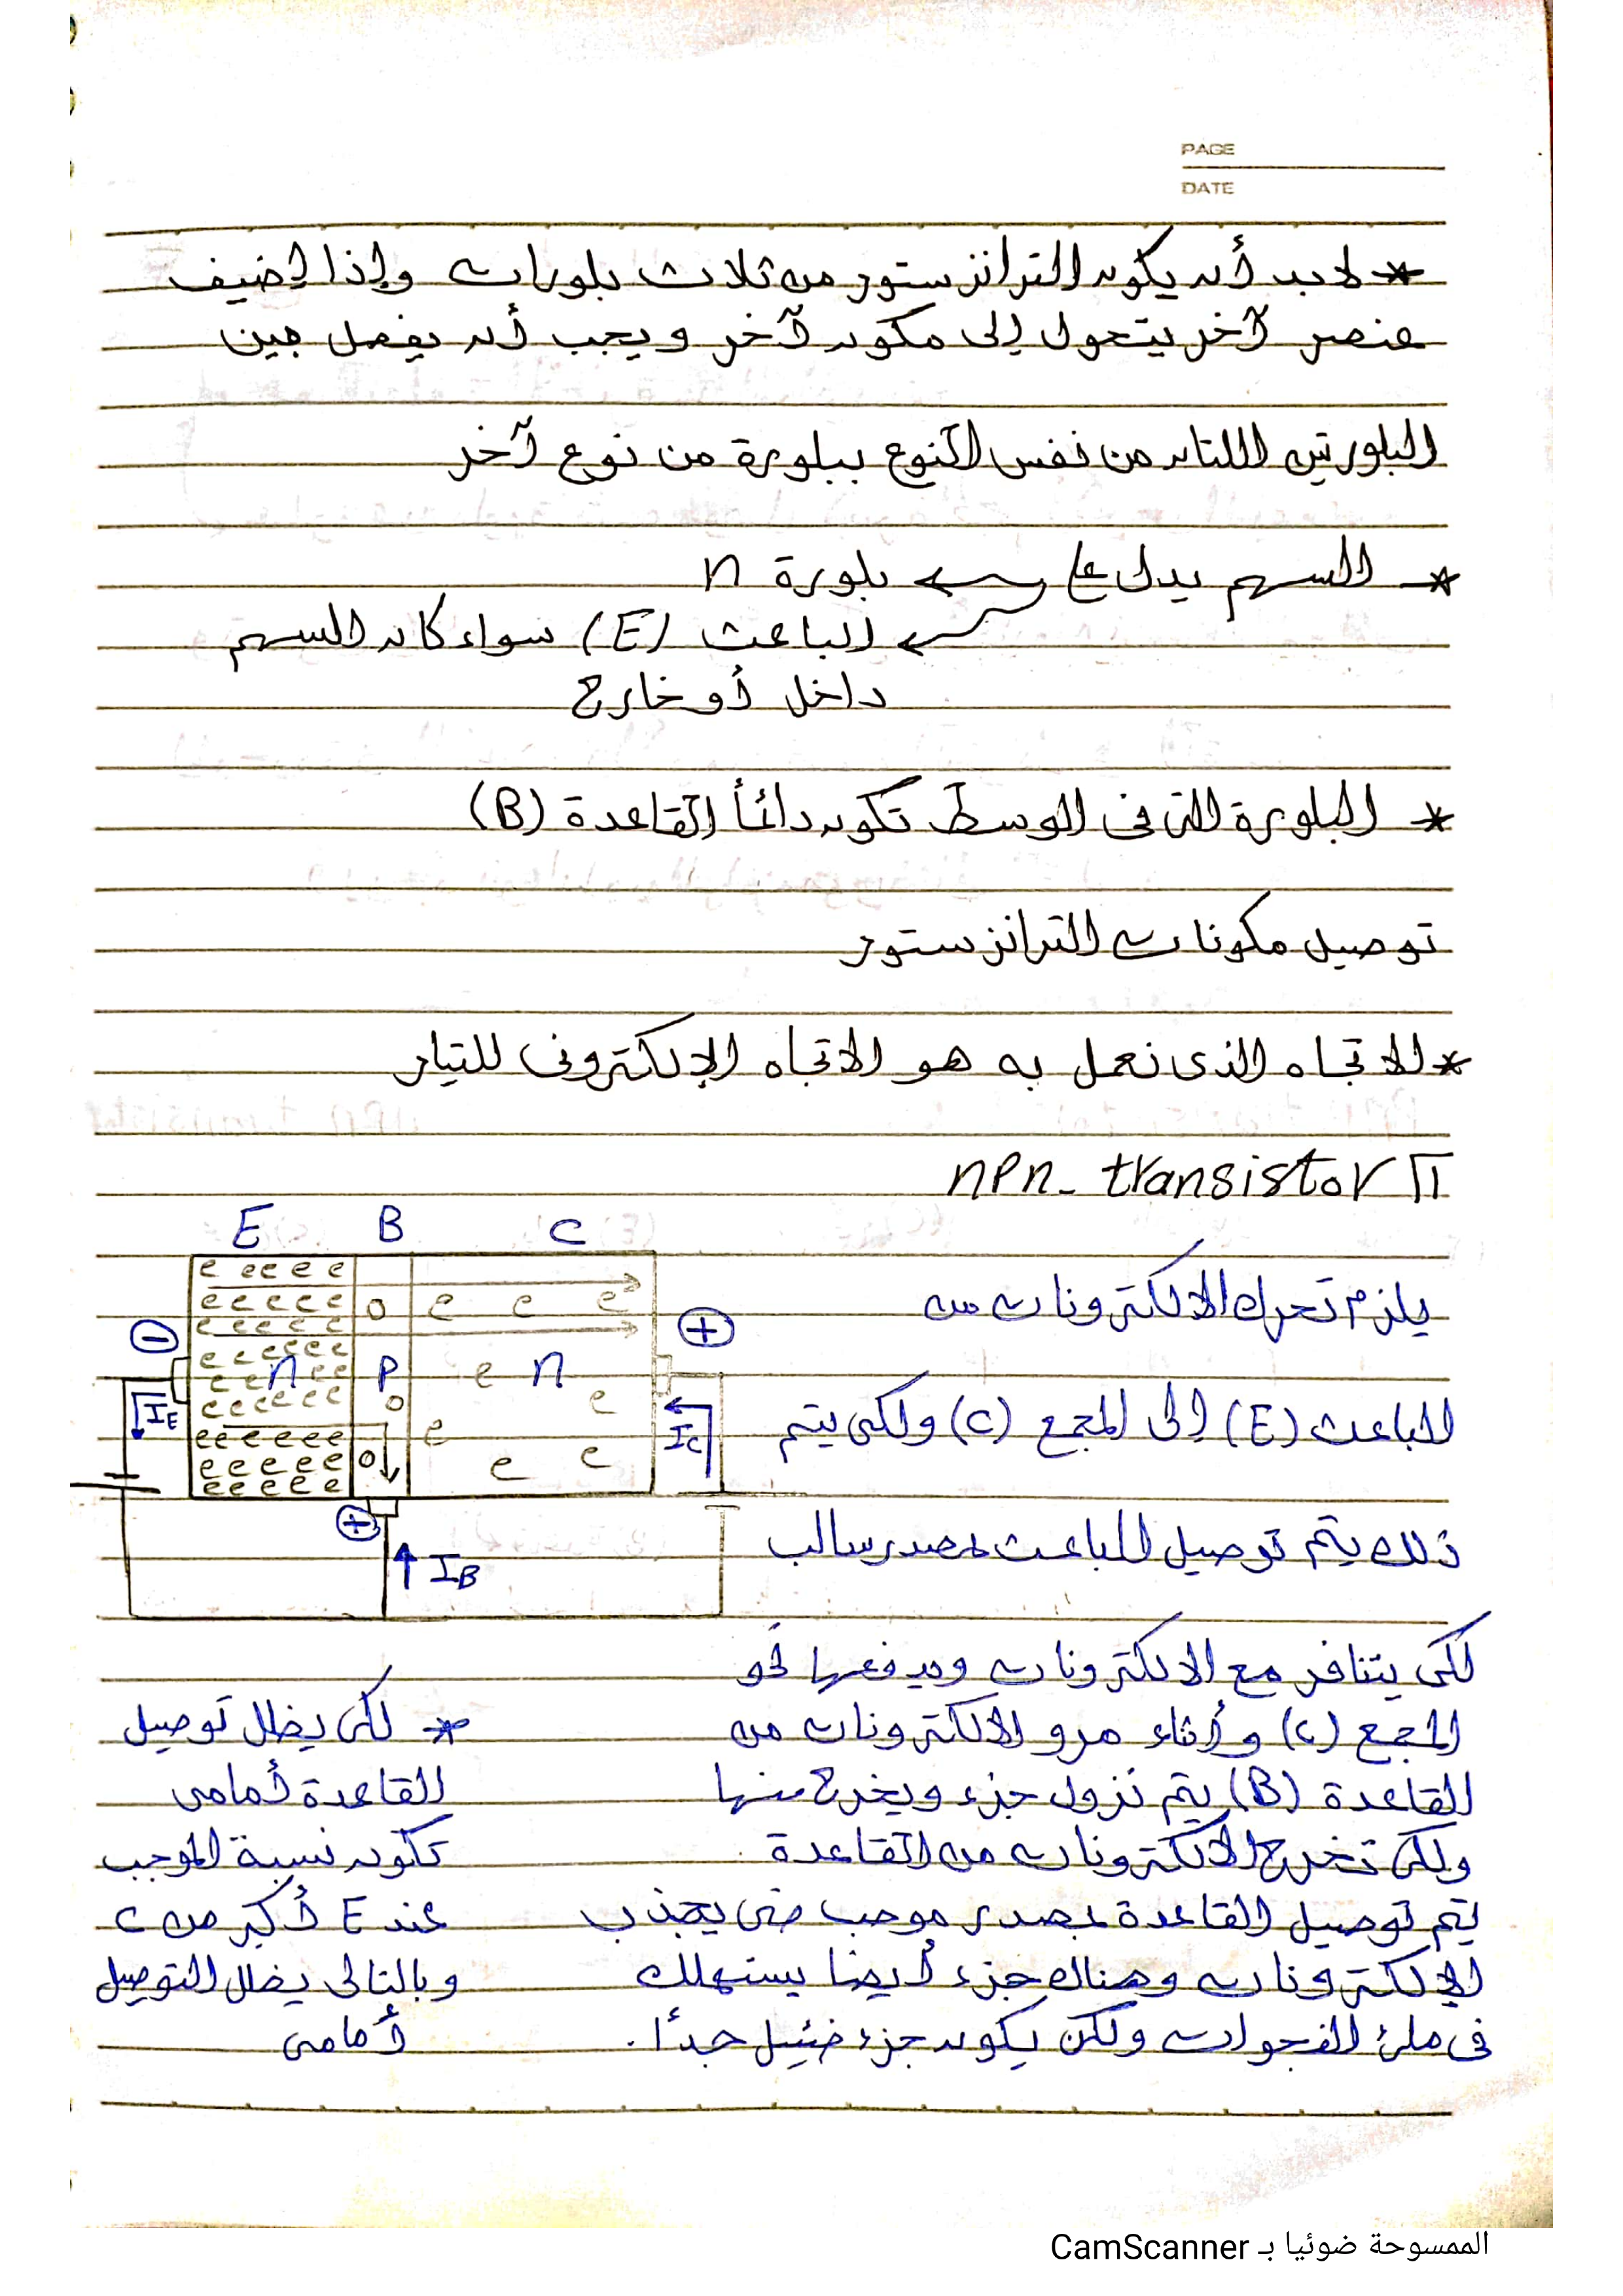 PAGE
DATE
* لابد أن يكون الترانزستور من ثلاث بلورات وإذا إضيف
عنصر آخر يتحول إلى مكون آخر ويجب أن يفصل بين
البلورتين اللتان من نفس النوع ببلورة من نوع آخر
* السهم يدل على ← بلورة n
← الباعث (E) سواء كان السهم
داخل أو خارج
* البلورة التى فى الوسط تكون دائماً القاعدة (B)
توصيل مكونات الترانزستور
* الاتجاه الذى نعمل به هو الاتجاه الإلكترونى للتيار
1 npn - transistor
E B C
e ee e e
e e e e e o e e e
e e e e e
⊖ ⊕
e e e e e e
e e n e e P e n
I_E e e e e e e o e I_C
ee e e e e e
e e e e e o e e
ee e e e e
⊕
I_B
يلزم تحرك الالكترونات من
الباعث (E) إلى المجمع (C) ولكى يتم
ذلك يتم توصيل الباعث بمصدر سالب
لكى يتنافر مع الالكترونات ويدفعها نحو
المجمع (C) وأثناء مرو الالكترونات من
القاعدة (B) يتم نزول جزء ويخرج منها
ولكى تخرج الالكترونات من القاعدة
يتم توصيل القاعدة بمصدر موجب حتى يجذب
الإلكترونات وهناك جزء أيضا يستهلك
فى ملئ الفجوات ولكن يكون جزء ضئيل جداً.
* لكى يظل توصيل
القاعدة أمامى
تكون نسبة الموجب
عند E أكبر من C
وبالتالى يظل التوصيل
أمامى
الممسوحة ضوئيا بـ CamScanner